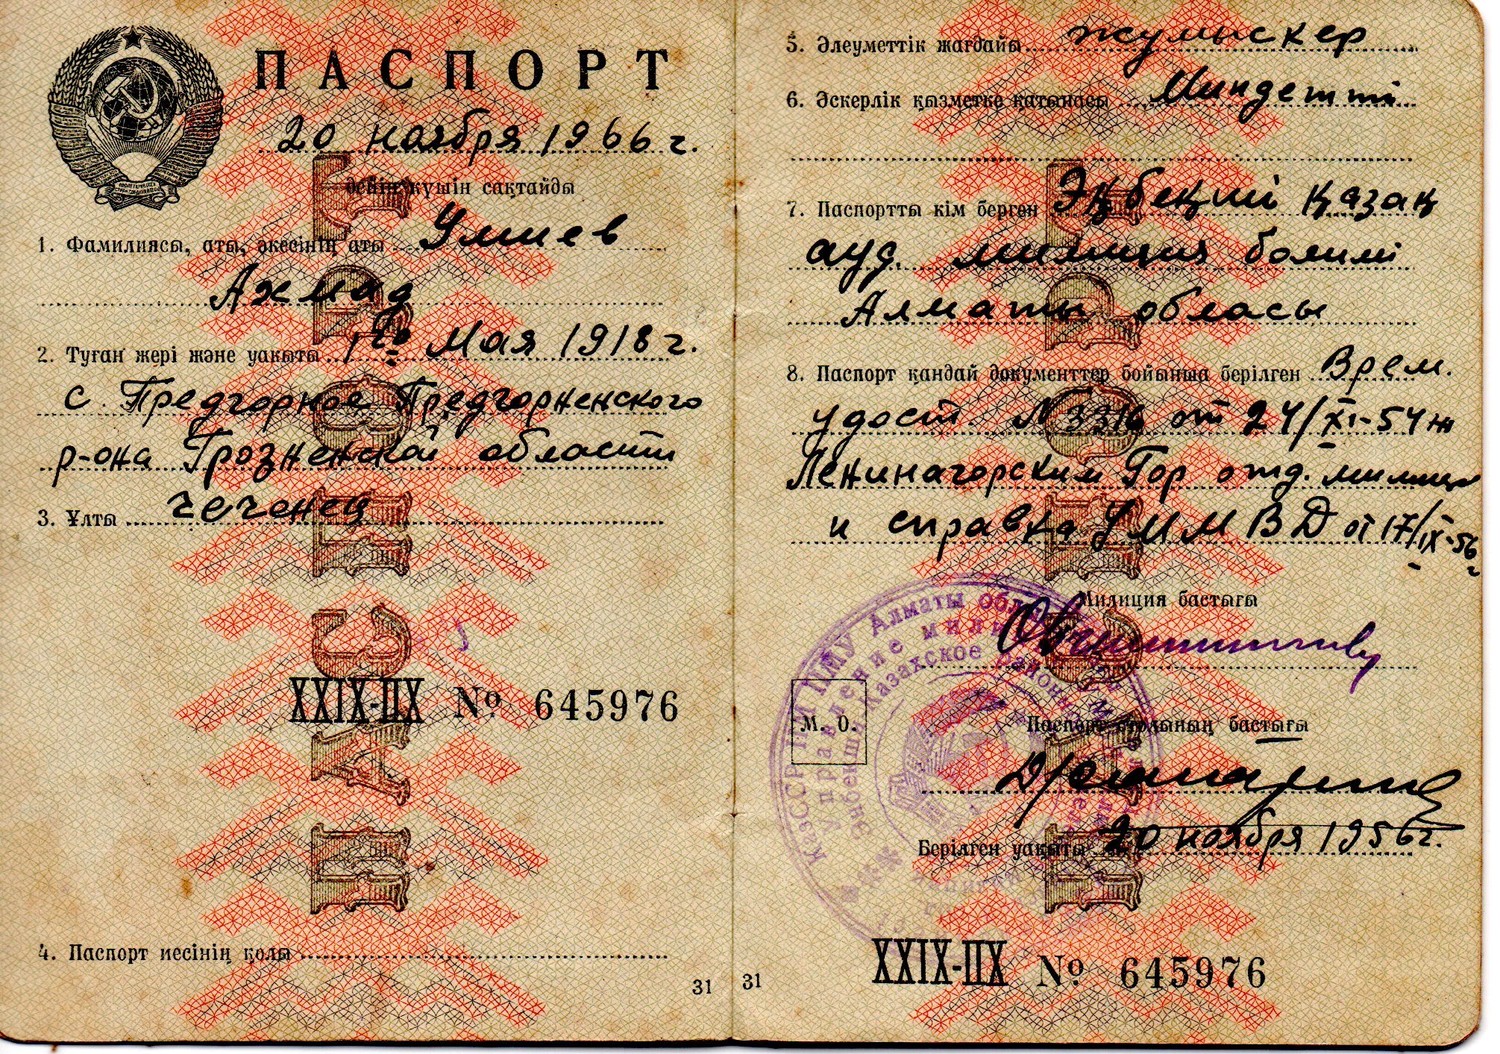 ПАСПОРТ
20 ноября 1966 г.
дейін күшін сақтайды
1. Фамилиясы, аты, әкесінің аты Умиев
Ахмад
2. Туған жері және уақыты 1го Мая 1918 г.
с. Предгорное Предгорненского
р-она Грозненской области
3. Ұлты чеченец
XXIX-ПХ № 645976
4. Паспорт иесінің қолы
31
5. Әлеуметтік жағдайы жумыскер
6. Әскерлік қызметке қатынасы Миндетті
7. Паспортты кім берген Эңбекші қазақ
ауд. милиция болимі
Алматы обласы
8. Паспорт қандай документтер бойынша берілген Врем.
удост. № 3316 от 24/XI-54 ж
Лениногорским Гор отд. милиции
и справка УМ МВД от 17/IX-56 г
Милиция бастығы
М. О.
Паспорт столының бастығы
Берілген уақыты 20 ноября 1956 г.
XXIX-ПХ № 645976
31
ПАСПОРТ
ПАСПОРТ
КазССР ІІМ ІІМУ Алматы обл
Управление мили
Энбекши-Казахское район